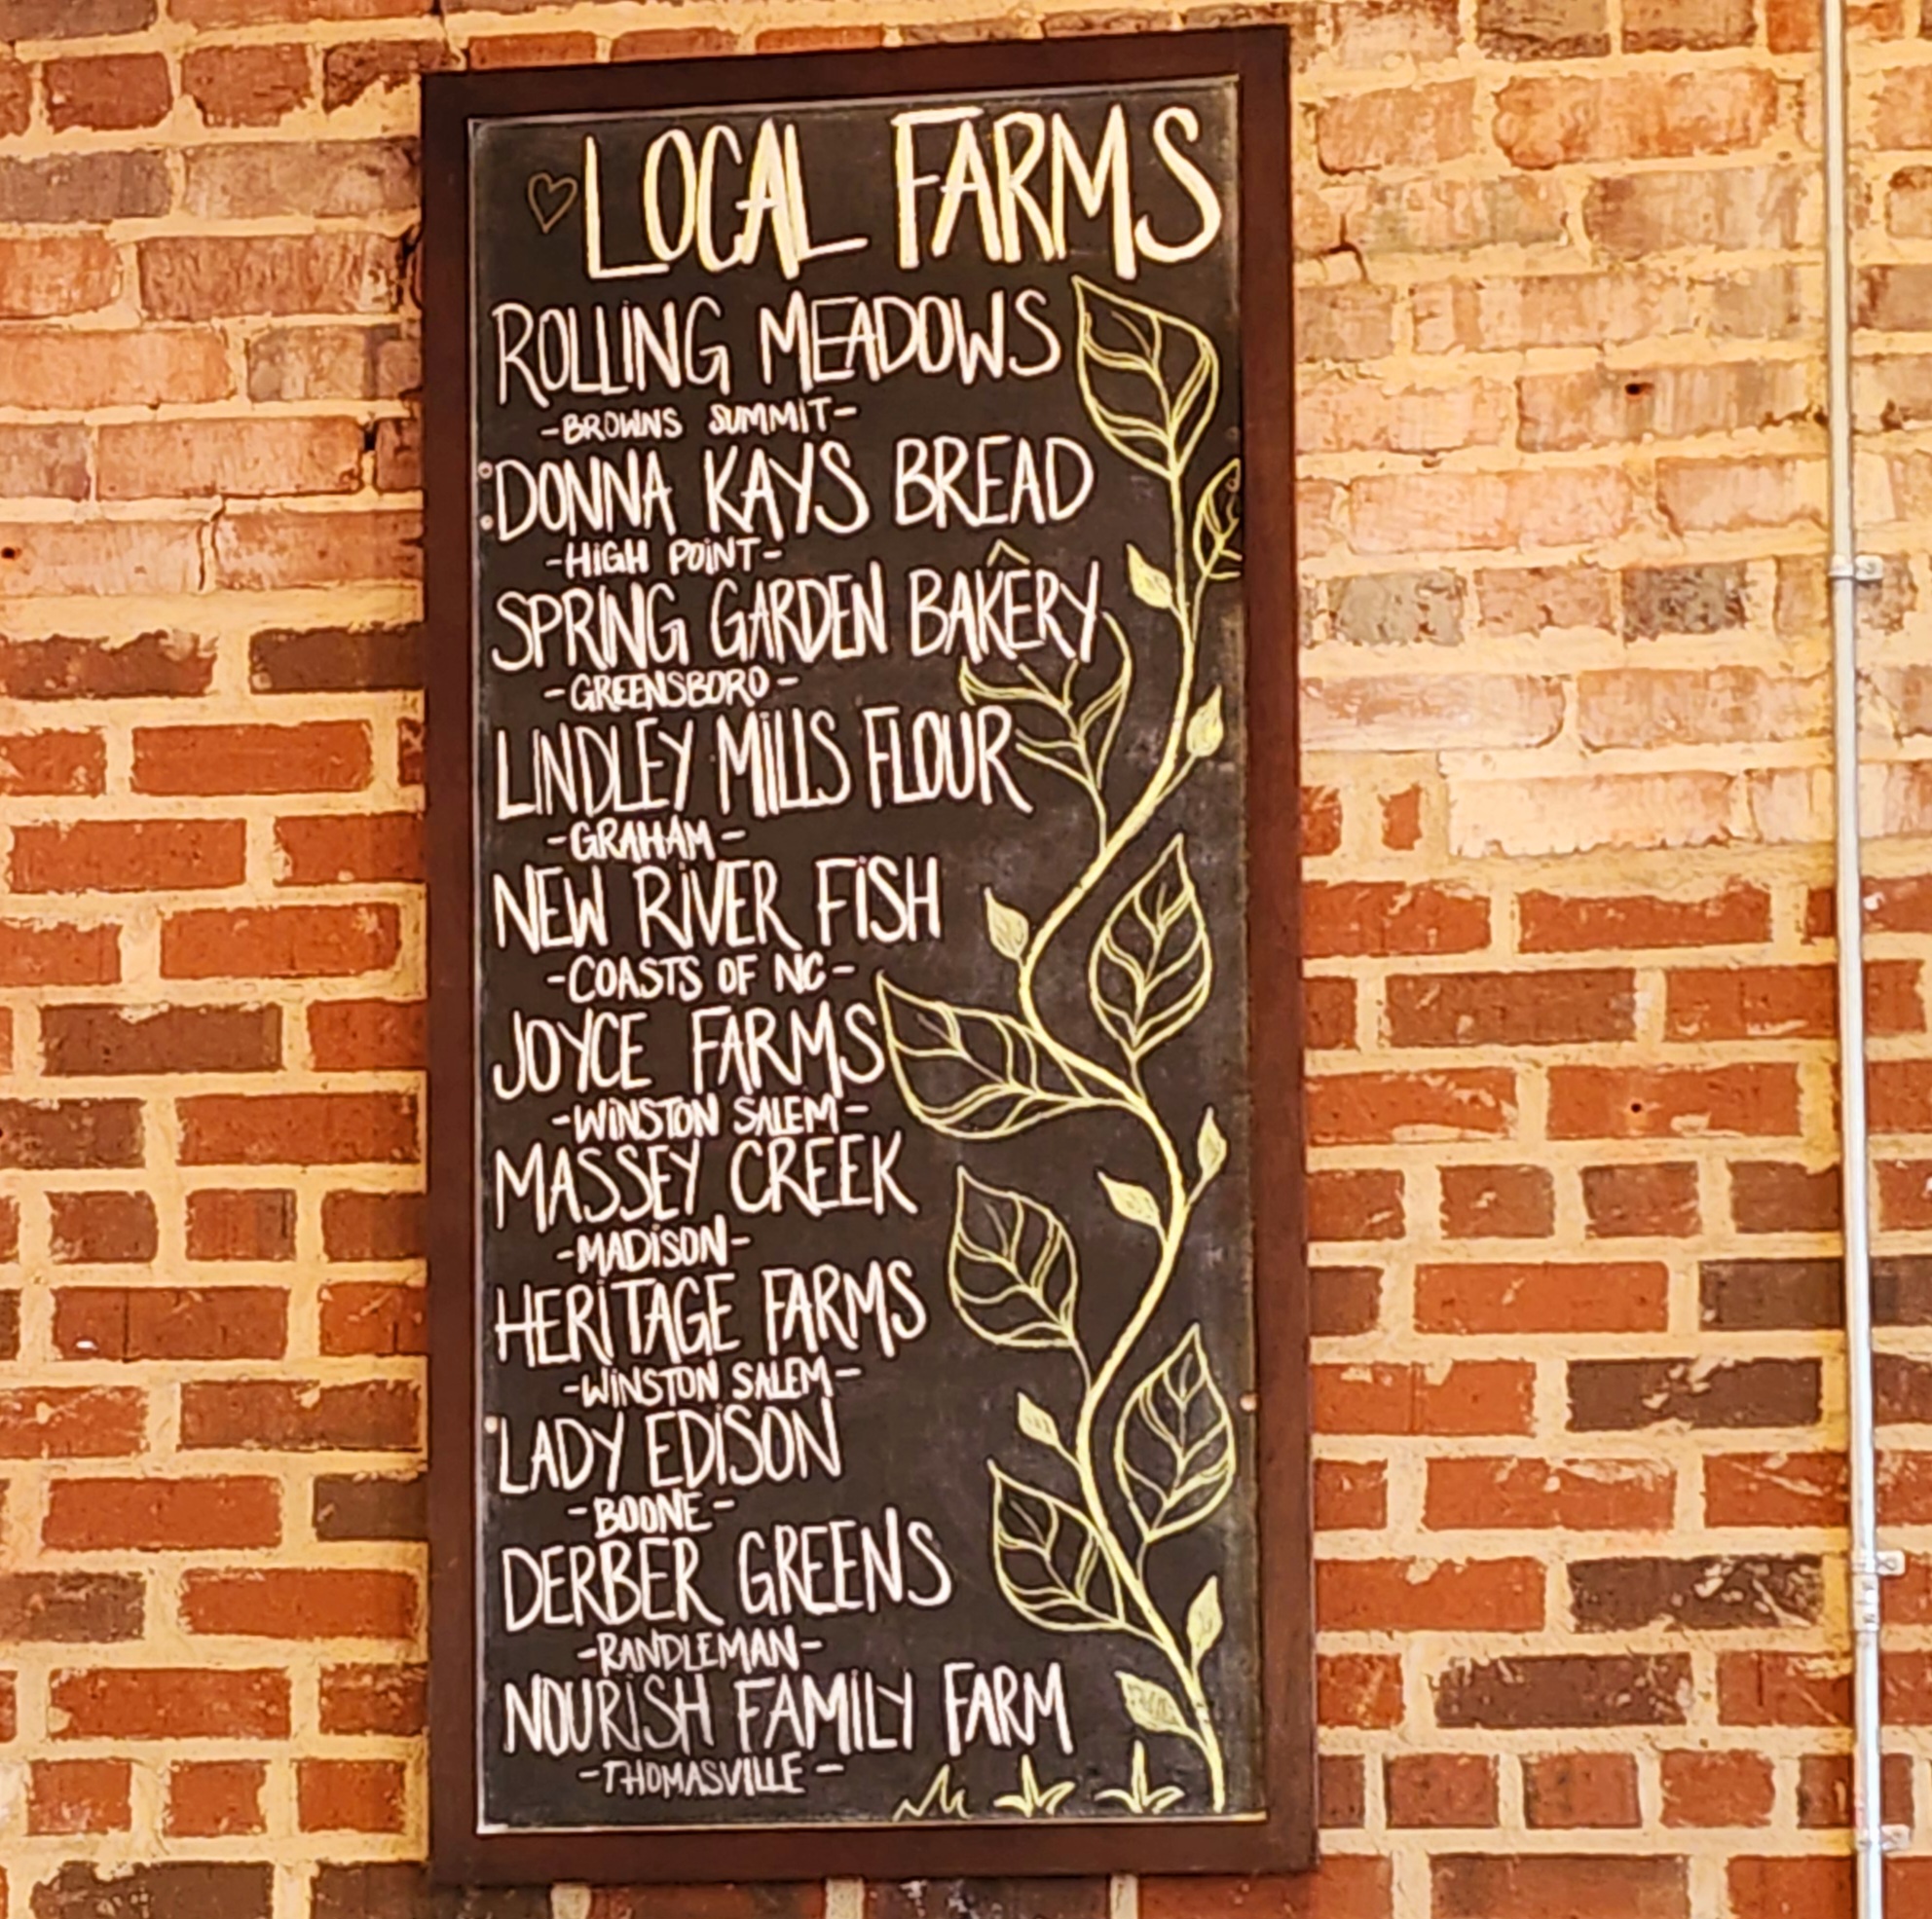 LOCAL FARMS
ROLLING MEADOWS
-BROWNS SUMMIT-
DONNA KAYS BREAD
-HIGH POINT-
SPRING GARDEN BAKERY
-GREENSBORO-
LINDLEY MILLS FLOUR
-GRAHAM-
NEW RIVER FISH
-COASTS OF NC-
JOYCE FARMS
-WINSTON SALEM-
MASSEY CREEK
-MADISON-
HERITAGE FARMS
-WINSTON SALEM-
LADY EDISON
-BOONE-
DERBER GREENS
-RANDLEMAN-
NOURISH FAMILY FARM
-THOMASVILLE-